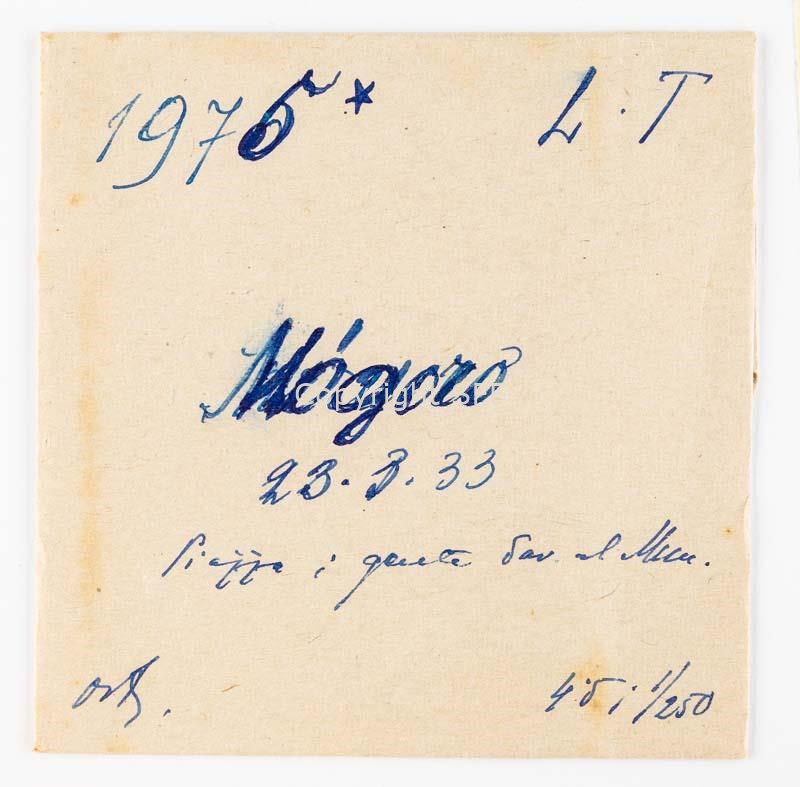 1975* L. T
Mógoro
23. 3. 33
Piazza; gente dav. al Mun.
orth.
4.5; 1/250